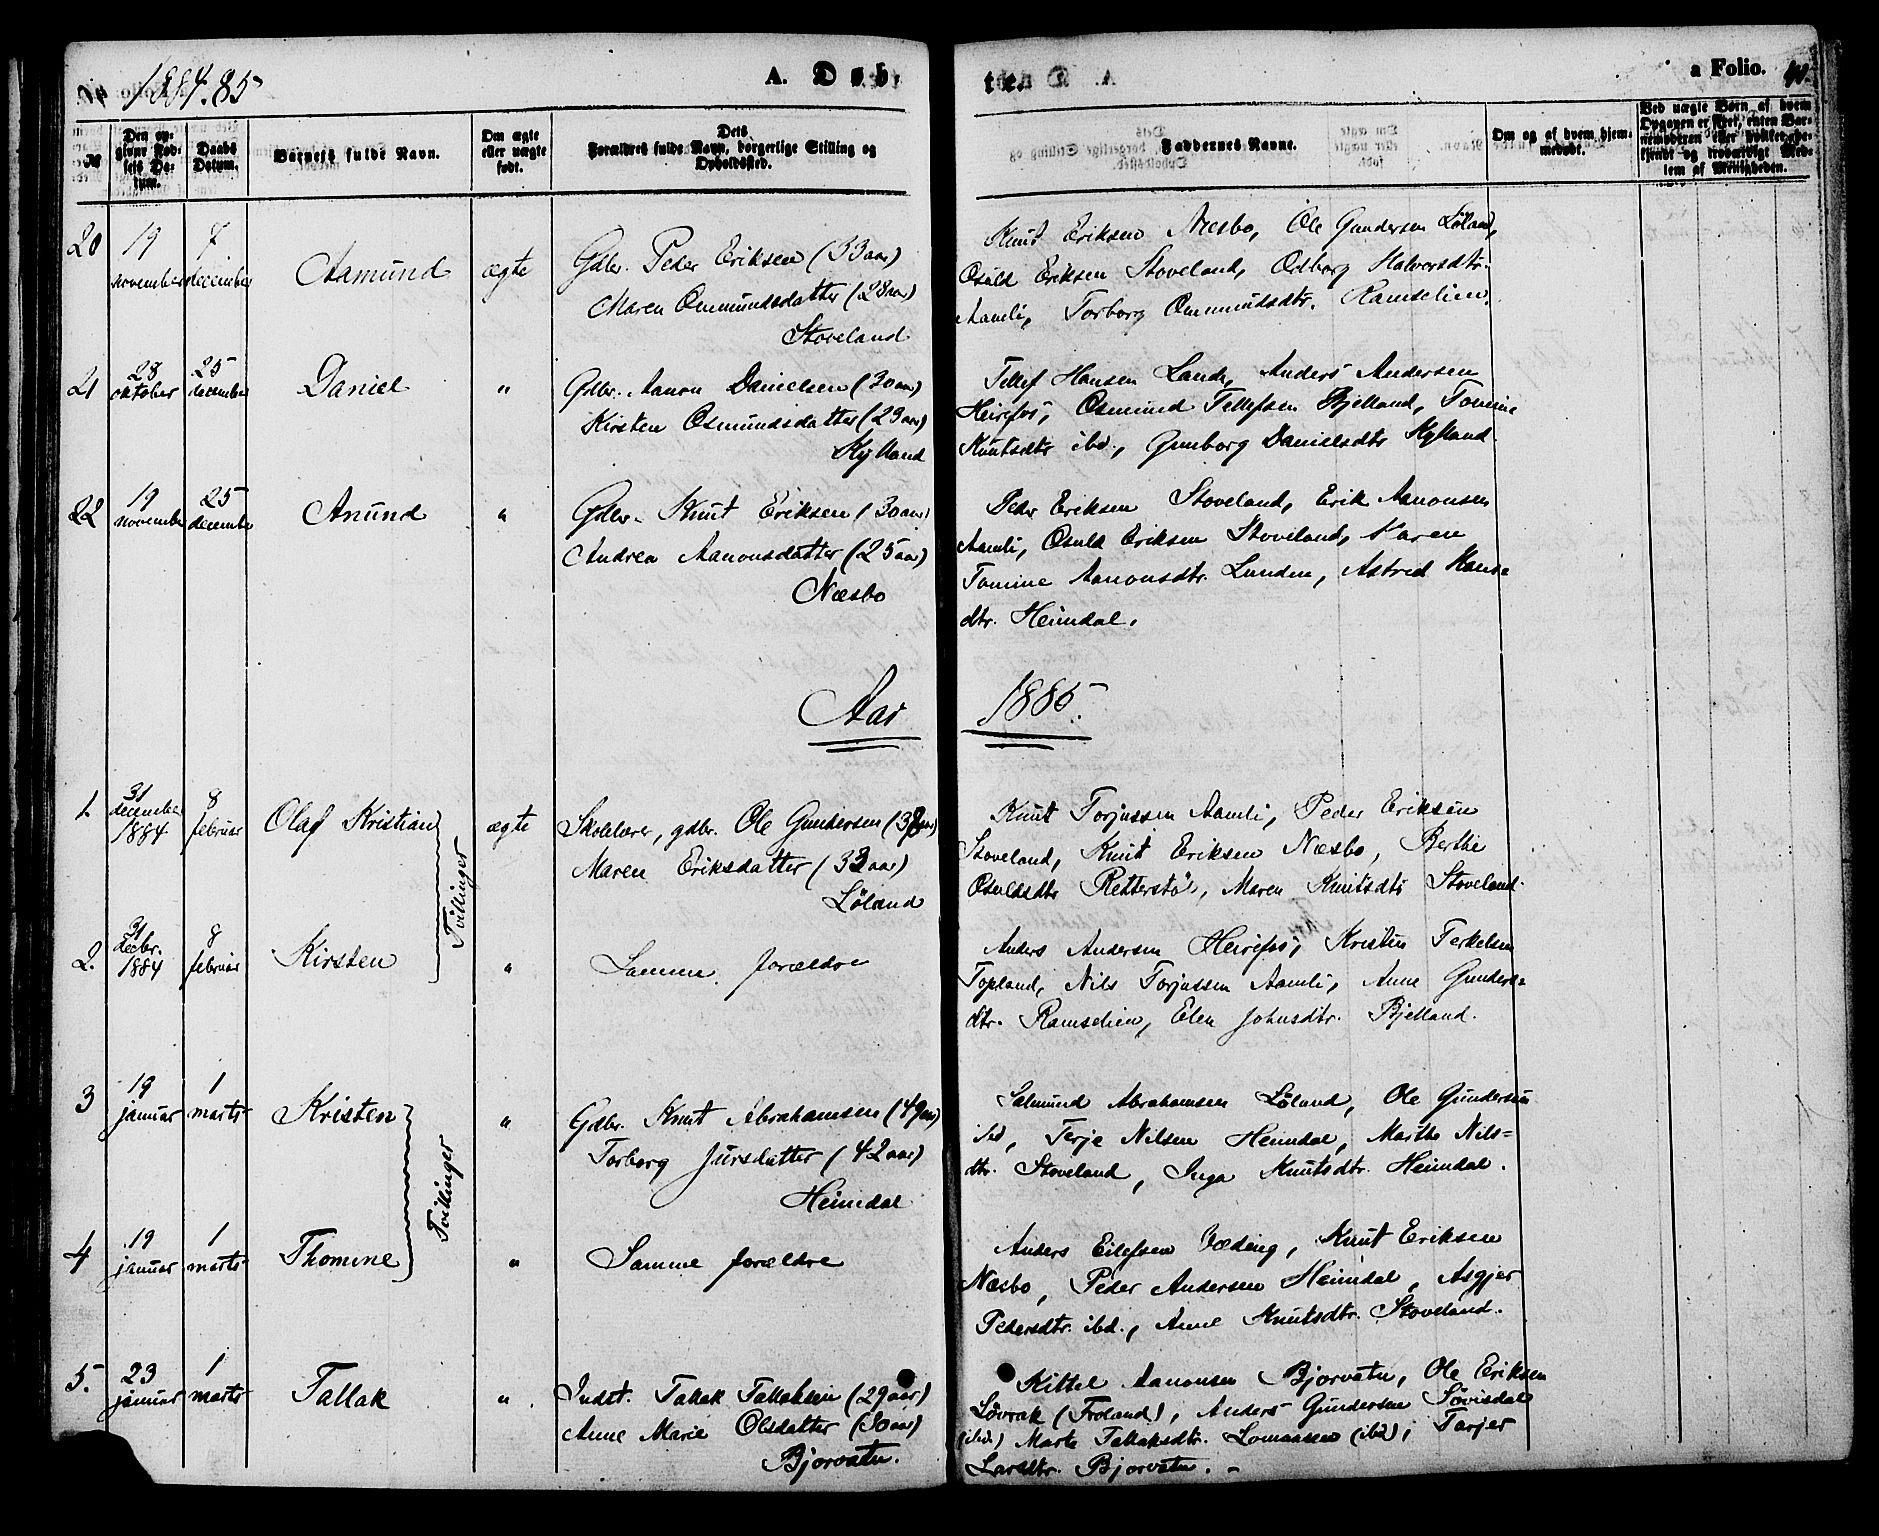 1884.85
A. Døb-
te.
a Folio. 40.
№
Den op-
givne Fød-
sels Da-
tum.
Daabs
Datum.
Barnets fulde Navn.
Om ægte
eller uægte
født.
Dets
Forældres fulde Navn, borgerlige Stilling og
Opholdssted.
Faddernes Navne.
Om og af hvem hjem-
medøbt.
Ved uægte Børn af hvem
Opgaven er skeet, enten Bar-
nemoderen eller hvilket be-
kjendt og troværdigt Med-
lem af Menigheden.
20
19
november
7
december
Aamund
ægte
Gdbr. Peder Eriksen (33 aar)
Maren Ommundsdatter (28 aar)
Stoveland
Knut Eriksen Næsbo, Ole Gundersen Löland,
Osuld Eriksen Stoveland, Odborg Halvorsdtr.
Aamli, Torborg Ommundsdtr. Ramselien.
21
28
oktober
25
december
Daniel
"
Gdbr. Aanon Danielsen (30 aar)
Kirsten Osmundsdatter (23 aar)
Kylland
Tellef Hansen Lande, Anders Andersen
Heirefos, Osmund Tellefsen Bjelland, Tomine
Knutsdtr ibd., Gunborg Danielsdtr Kylland
22
19
november
25
december
Anund
"
Gdbr. Knut Eriksen (30 aar)
Andrea Aanonsdatter (25 aar)
Næsbo
Peder Eriksen Stoveland, Erik Aanonsen
Aamli, Osuld Eriksen Stoveland, Karen
Tomine Aanonsdtr. Lunden, Astred Hans-
dtr. Heimdal.
Aar 1885.
1.
31
december
1884
8
februar
Olaf Kristian
Tvillinger
ægte
Skolelærer, gdbr. Ole Gundersen (38 aar)
Maren Eriksdatter (33 aar)
Löland
Knut Torjussen Aamli, Peder Eriksen
Stoveland, Knut Eriksen Næsbo, Berthe
Osuldsdtr Retterstö, Maren Knutsdtr Stoveland.
2.
31
decbr.
1884
8
februar
Kirsten
"
Samme forældre
Anders Andersen Heirefos, Kristen Terkelsen
Topland, Nils Torjussen Aamli, Anne Gunders-
dtr. Ramselien, Elen Johnsdtr. Bjelland.
3
19
januar
1
marts
Kristen
Tvillinger
"
Gdbr. Knut Abrahamsen (49 aar)
Torborg Jursdatter (42 aar)
Heimdal
Salmund Abrahamsen Löland, Ole Gundersen
ibd, Terje Nilsen Heimdal, Marthe Nils-
dtr. Stoveland, Inga Knutsdtr. Heimdal.
4
19
januar
1
marts
Thomine
"
Samme forældre
Anders Eilefsen Væding, Knut Eriksen
Næsbo, Peder Andersen Heimdal, Asgjer
Pedersdtr. ibd., Anne Knutsdtr. Stoveland.
5.
23
januar
1
marts
Tallak
"
Indst. Tallak Tallaksen (29 aar)
Anne Marie Olsdatter (30 aar)
Bjorvatn.
Kittel Aanonsen Bjorvatn, Ole Eriksen
Lövrak (Froland), Anders Gundersen Sövisdal
(ibd.) Marte Tallaksdtr. (ibd), Torjer
Larsdtr. Bjorvatn. -